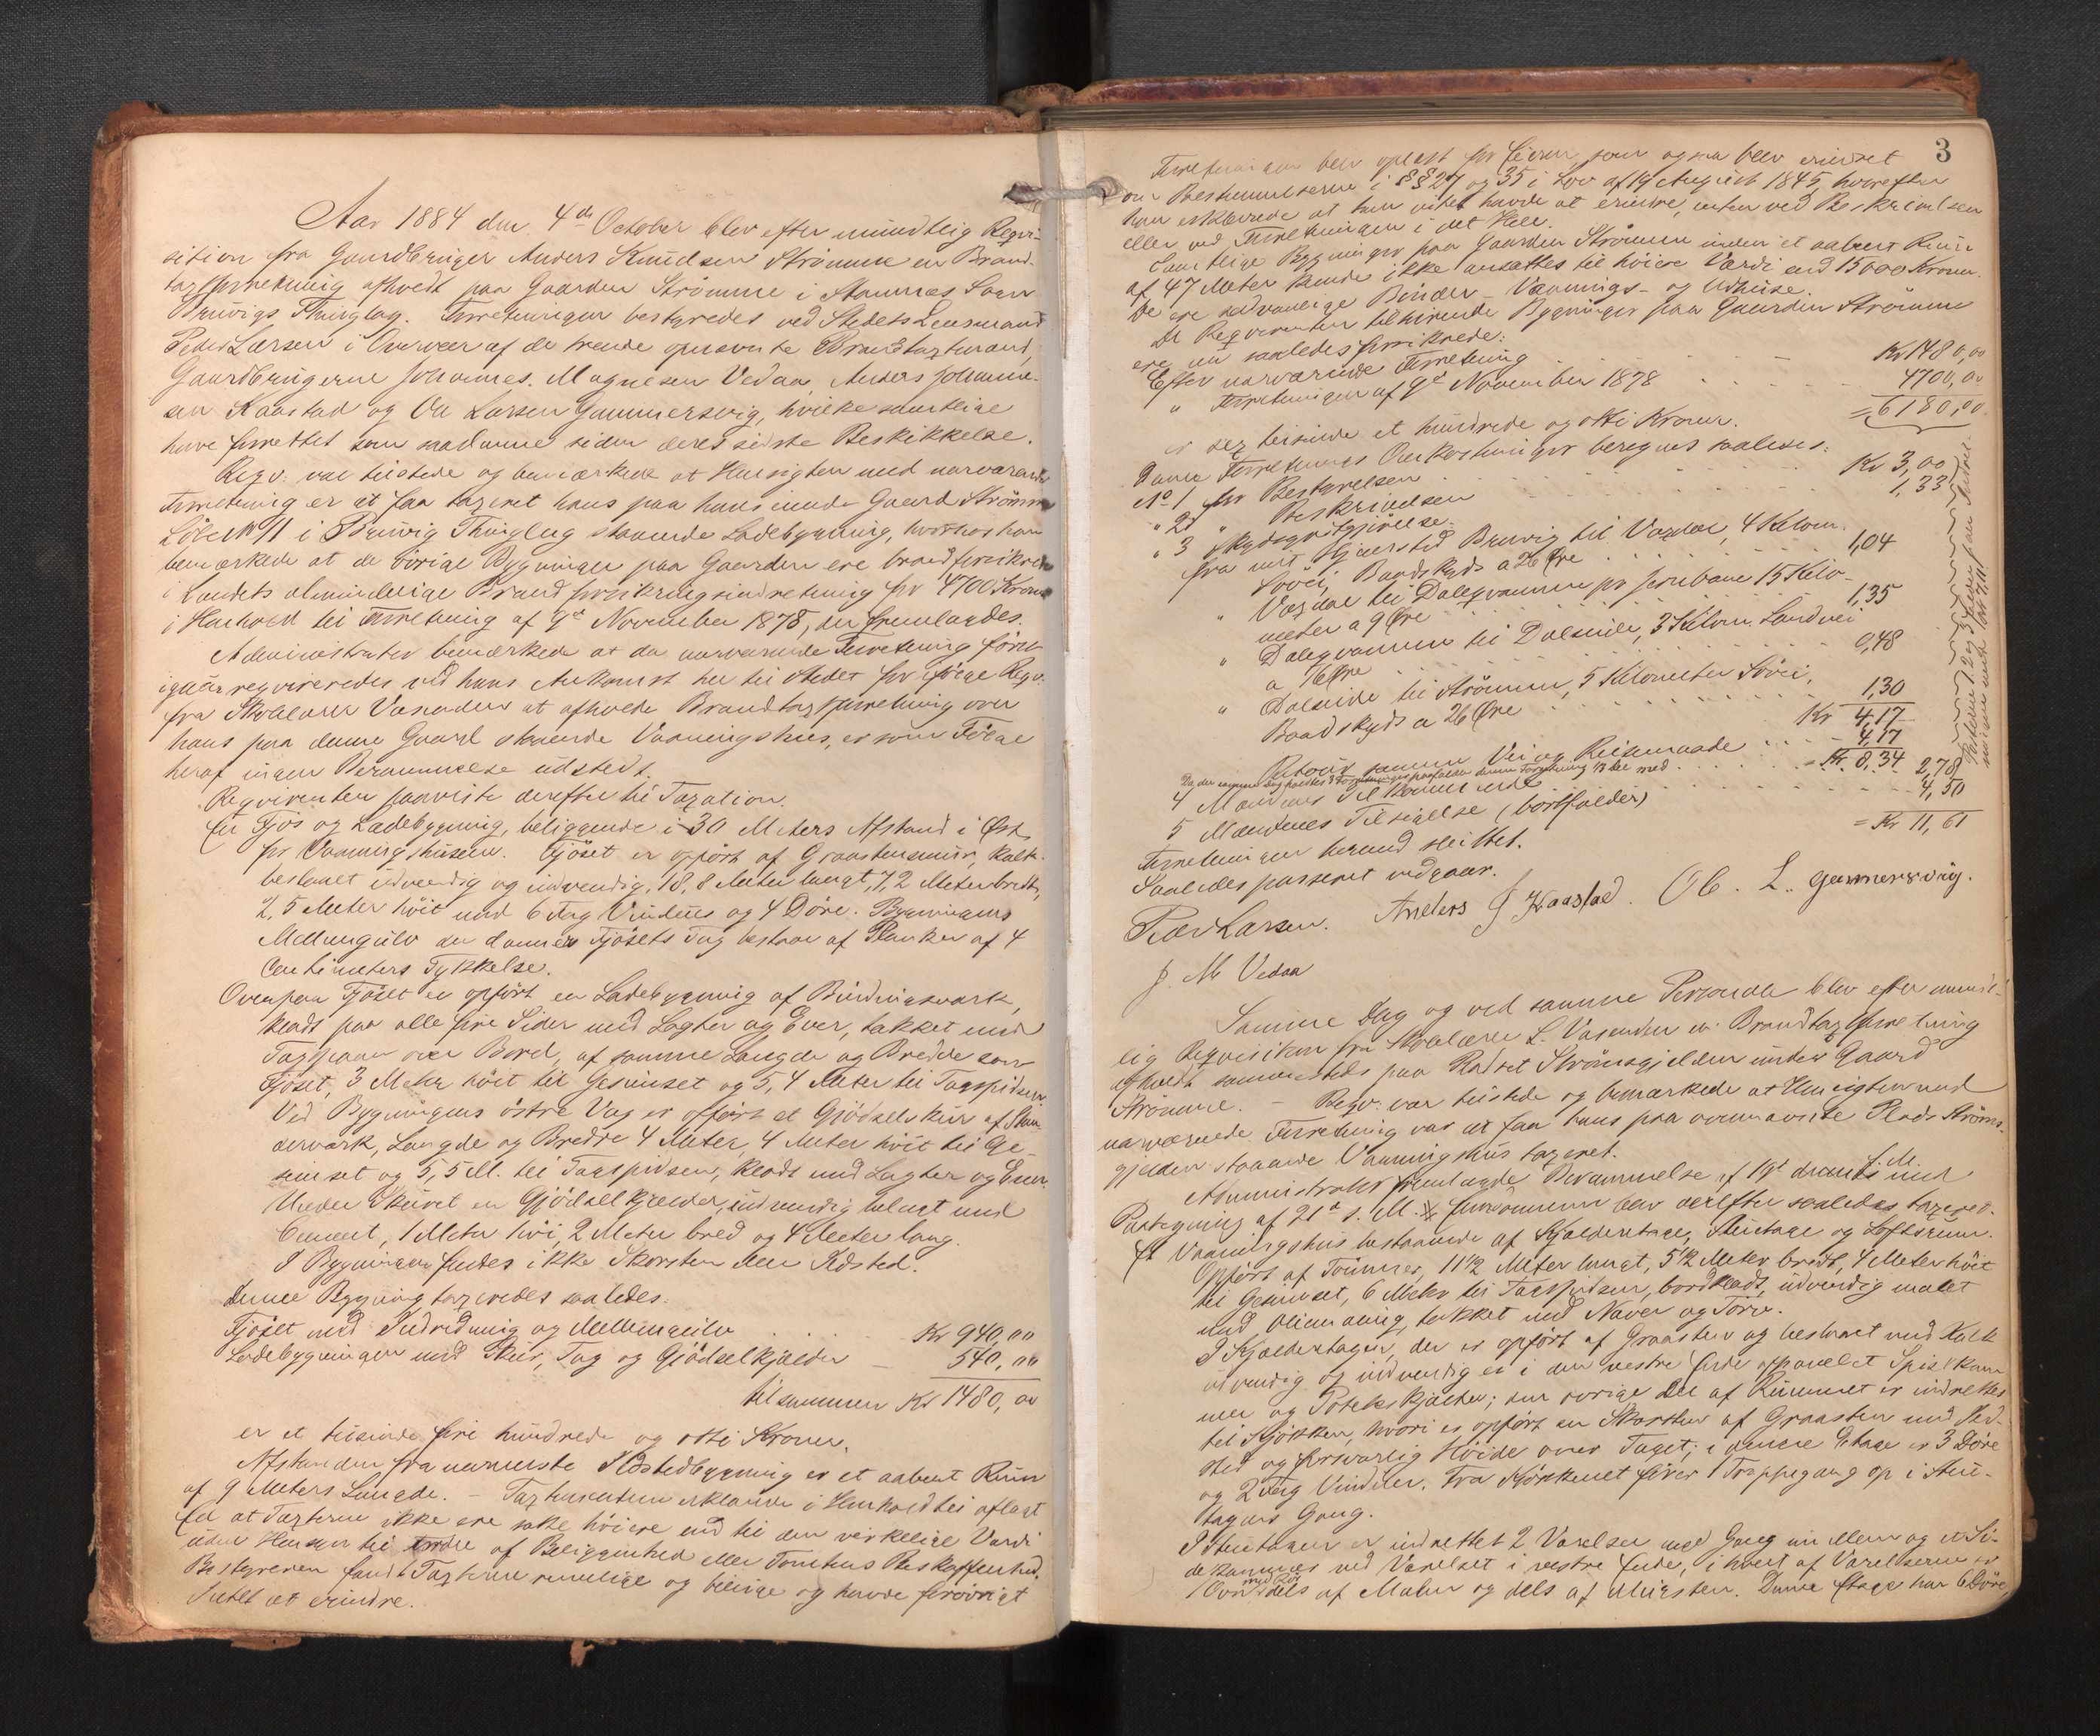 Aar 1884 den 4de October blev efter mundtlig Reqvi-
sition fra Gaardbruger Anders Knudsen Strömme en Brand-
taxtforretning afholdt paa Gaarden Strömme i Stamnes Sogn
Bruvigs Thinglag. Forretningen bestyredes ved Stedets Lensmand
Peder Larsen i Overvær af de trende opnævnte Brandtaxtmænd,
Gaardbrugerne Johannes Magnesen Vedaa, Anders Johanne-
sen Kaastad og Ole Larsen Gammersvig, hvilke samtlige
have forrettet som saadanne siden deres sidste Beskikkelse.
Reqv. var tilstede og bemærkede at Hensigten med nærværende
Forretning er at faa taxeret hans paa hans iende Gaard Strömme
Löbe No 11 i Bruvig Thinglag staaende Ladebygning, hvorhos han
bemærkede at de övrige Bygninger paa Gaarden ere brandforsikrede
i Landets almindelige Brandforsikringsindretning for 4700 Kroner
i Henhold til Forretning af 9de November 1878, der fremlagdes.
Administrator bemærkede at da nærværende Forretning först
igaar reqvireredes ved hans Ankomst her til Stedet for ifölge Reqv.
fra Skolelærer Vasenden at afholde Brandtaxtforretning over
hans paa denne Gaard staaende Vaaningshus, er som Fölge
heraf ingen Berammelse udstedt.
Reqvirenten paaviste derefter til Taxation.
En Fjös og Ladebygning, beliggende i 30 Meters Afstand i Öst
for Vaaningshusene. Fjöset er opfört af Graastensmur, kalk-
beslaaet udvendig og indvendig, 18,8 Meter langt, 7,2 Meter bredt,
2,5 Meter höit med 6 Fag Vinduer og 4 Döre. Bygningens
Mellemgulv der danner Fjösets Tag bestaar af Planker af 4
Centimeters Tykkelse.
Ovenpaa Fjöset er opfört en Ladebygning af Bindingsværk,
klædt paa alle fire Sider med Lægter og Ever, takket med
Tagspaan over Bord, af samme Længde og Bredde som
Fjöset, 3 Meter höit til Gesimset og 5,4 Meter til Tagspidsen.
Ved Bygningens östre Væg er opfört et Gjödselskur af Stan-
derværk, Længde og Bredde 4 Meter, 4 Meter höit til Ge-
simset og 5,5 M. til Tagspidsen, klædt med Lægter og Ever.
Under Skuret en Gjödselkjelder, indvendig belagt med
Cement, 1 Meter höi, 2 Meter bred og 4 Meter lang.
I Bygningen findes ikke Skorsten eller Ildsted.
Denne Bygning taxeredes saaledes:
Fjöset med Indredning og Mellemgulv . . . Kr 940,00
Ladebygningen med Skur, Tag og Gjödselkjelder — 540,00
tilsammen Kr 1480,00
er et tusinde fire hundrede og otti Kroner.
Afstanden fra nærmeste Ildstedbygning er et aabent Rum
af 9 Meters Længde. — Taxtmændene erklærede i Henhold til aflagt
Ed at Taxterne ikke ere satte höiere end til den virkelige Værdi
uden Hensyn til Beliggenhed eller Tomtens Beskaffenhed.
Bestyreren fandt Taxterne rimelige og billige og havde forövrigt
Intet at erindre.
3
Forretningen blev oplæst for Eieren, som ogsaa blev erindret
om Bestemmelserne i §§ 27 og 35 i Lov af 19 August 1845, hvorefter
han erklærede at han intet havde at erindre, enten ved Beskrivelsen
eller ved Forretningen i det Hele.
Samtlige Bygninger paa Gaarden Strömme inden et aabent Rum
af 47 Meter kunde ikke ansættes til höiere Værdi end 15000 Kroner.
De ere sædvanlige Bönder-Vaanings- og Udhuse.
De Reqvirenten tilhörende Bygninger paa Gaarden Strömme
ere nu saaledes forsikrede:
Efter nærværende Forretning . . . Kr 1480,00
" Forretningen af 9de November 1878 . . . 4700,00
= 6180,00
er sex tusinde et hundrede og otti Kroner.
Denne Forretnings Omkostninger beregnes saaledes:
No 1 for Bestyrelsen . . . Kr 3,00
" 2 " Beskrivelsen . . . 1,33
" 3 Skydsgodtgjörelse:
fra mit Hjemsted Bruvig til Vaxdal, 4 Kilom.
Sövei, Baadskyds a 26 Öre . . . 1,04
" Vaxdal til Dalegvammen pr Jernbane 15 Kilo-
meter a 9 Öre . . . 1,35
" Dalegvammen til Dalseide, 3 Kilom. Landvei
a 16 Öre . . . 0,48
" Dalseide til Strömme, 5 Kilometer Sövei,
Baadskyds a 26 Öre . . . 1,30
Kr 4,17
Retour samme Vei og Reisemaade . . . 4,17
= Kr. 8,34
Da der samme Dag holdtes 3 Forretninger paafalder denne Forretning 1/3 Del med . . . 2,78
4 Mændenes Tilkommende . . . 4,50
5 Mændenes Tilsigelse (bortfalder)
= Kr 11,61
Posterne 1, 2 og 3
Forretningen hermed sluttet.
Saaledes passeret vedgaar.
Peder Larsen. Anders J Kaastad. Ole. L. Gammersvig.
J. M Vedaa
Samme Dag og ved samme Personale blev efter mundt-
lig Reqvisition fra Skolelærer L. Vasenden en Brandtaxtforretning
afholdt sammesteds paa Pladset Strömsgjelden under Gaard
Strömme. — Reqv. var tilstede og bemærkede at Hensigten med
nærværende Forretning var at faa hans paa ovennævnte Plads Ströms-
gjelden staaende Vaaningshus taxeret.
Administrator fremlagde Berammelse af 19de f. M. med
Paategning af 21de s. M. Eiendommen blev derefter saaledes taxeret:
Et Vaaningshus bestaaende af Kjelderetage, Stuetage og Loftsrum.
Opfört af Tömmer, 11 1/2 Meter langt, 5 1/2 Meter bredt, 4 Meter höit
til Gesimset, 6 Meter til Tagspidsen, bordklædt, udvendig malet
med Oliemaling, takket med Næver og Törv.
I Kjelderetagen, der er opfört af Graasten og beslaaet med Kalk
udvendig og indvendig er i den vestre Ende afpanelet Spiskam-
mer og Potetkjelder; den övrige Del af Rummet er indrettet
til Kjökken, hvori er opfört en Skorsten af Graasten med Ild-
sted og forsvarlig Höide over Taget; i denne Etage er 3 Döre
og 2 Fag Vinduer. Fra Kjökkenet förer 1 Trappegang op i Stue-
etagens Gang.
I Stueetagen er indrettet 2 Værelser med Gang imellem og et Si-
dekammer ved Værelset i vestre Ende, i hvert af Værelserne er
1 Ovn med Rör dels af Malm og dels af Mursten. Denne Etage har 6 Döre,